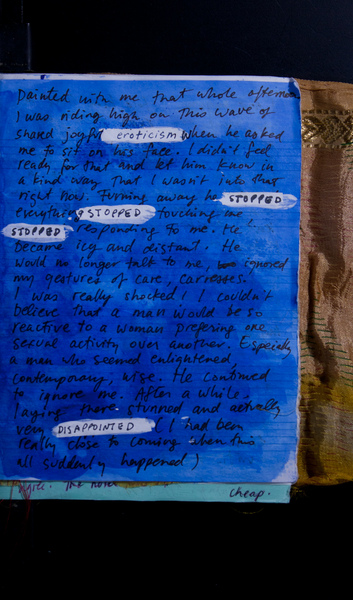 Painted with me that whole afternoon
I was riding high on this wave of
shared joyful eroticism when he asked
me to sit on his face. I didn't feel
ready for that and let him know in
a kind way that I wasn't into that
right now. Turning away he STOPPED
everything STOPPED touching me
STOPPED responding to me. He
became icy and distant. He
would no longer talk to me, ignored
my gestures of care, carresses.
I was really shocked! I couldn't
believe that a man would be so
reactive to a woman prefering one
sexual activity over another. Especially
a man who seemed enlightened,
contemporary, wise. He continued
to ignore me. After a while,
laying there stunned and actually
very DISAPPOINTED (I had been
really close to coming when this
all suddenly happened)
cheap.